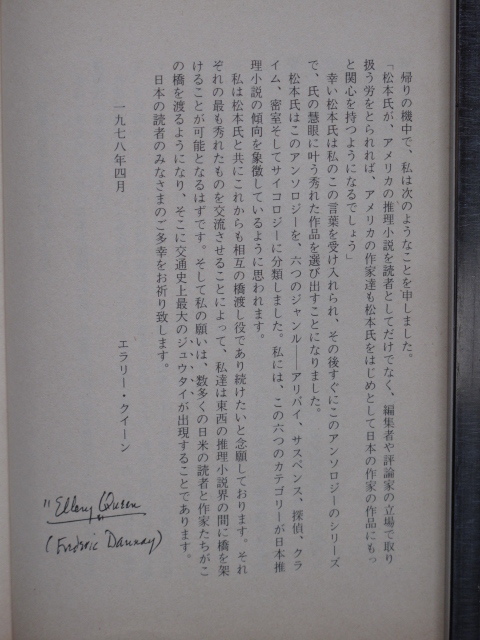 帰りの機中で、私は次のようなことを申しました。
「松本氏が、アメリカの推理小説を読者としてだけでなく、編集者や評論家の立場で取り
扱う労をとられれば、アメリカの作家達も松本氏をはじめとして日本の作家の作品にもっ
と関心を持つようになるでしょう」
幸い松本氏は私のこの言葉を受け入れられ、その後すぐにこのアンソロジーのシリーズ
で、氏の慧眼に叶う秀れた作品を選び出すことになりました。
松本氏はこのアンソロジーを、六つのジャンル――アリバイ、サスペンス、探偵、クラ
イム、密室そしてサイコロジーに分類しました。私には、この六つのカテゴリーが日本推
理小説の傾向を象徴しているように思われます。
私は松本氏と共にこれからも相互の橋渡し役であり続けたいと念願しております。それ
ぞれの最も秀れたものを交流させることによって、私達は東西の推理小説界の間に橋を架
けることが可能となるはずです。そして私の願いは、数多くの日米の読者と作家たちがこ
の橋を渡るようになり、そこに交通史上最大のジュウタイが出現することであります。
日本の読者のみなさまのご多幸をお祈り致します。
一九七八年四月
エラリー・クイーン
"Ellery Queen"
(Frederic Dannay)